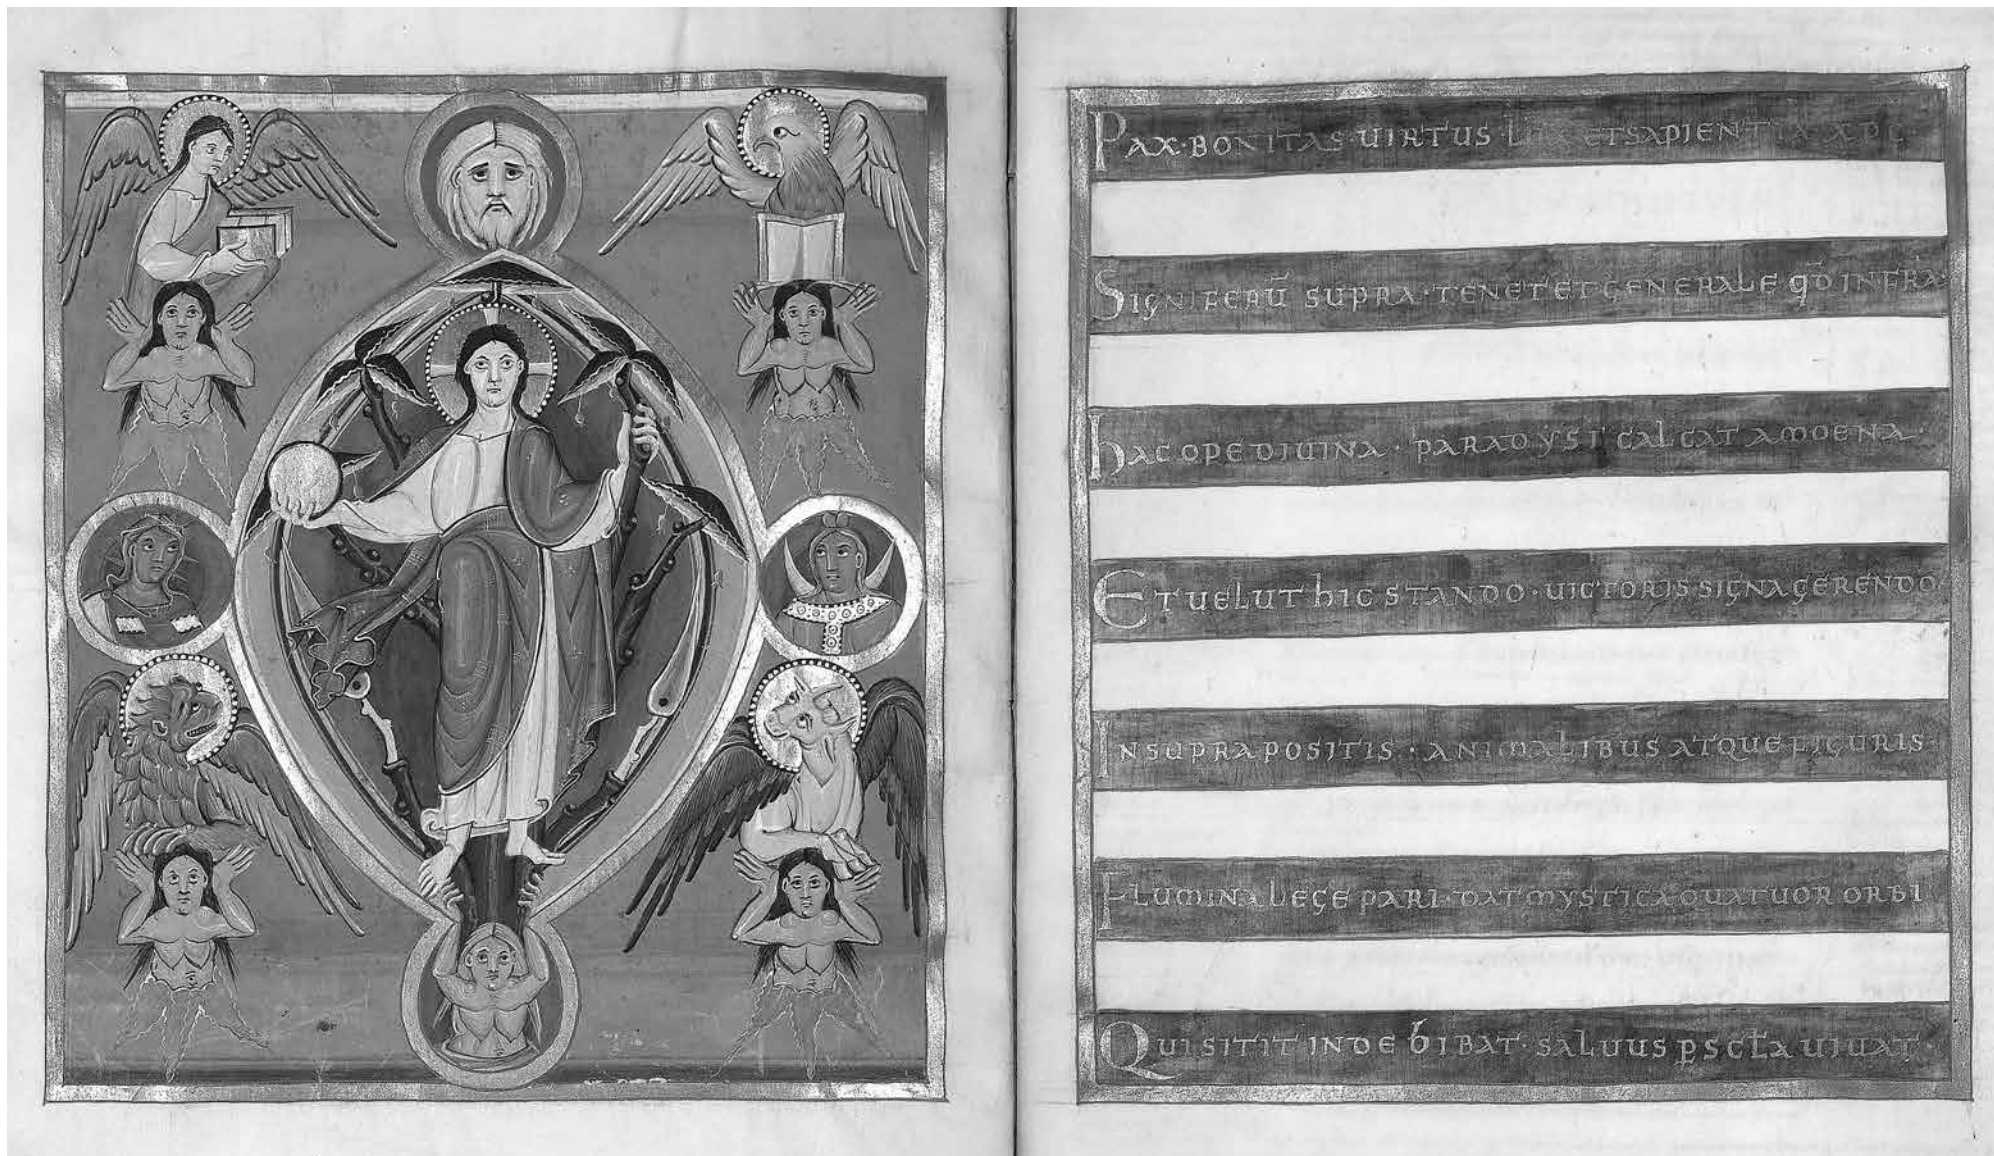 PAX·BONITAS·UIRTUS LUX ETSAPIENTIA
SIGNIFERŪ SUPRA·TENET ET GENERALE qđ INFRA·
hAC OPE DIUINA·PARADYSI CALCAT AMOENA·
ET UELUT hIC STANDO·UICTORIS SIGNA GERENDO
IN SUPRAPOSITIS·ANIMALIBUS ATQUE FIGURIS·
FLUMINA LEGE PARI·DAT MYSTICA QUATUOR ORBI
QUI SITIT INDE BIBAT·SALUUS UIUAT·